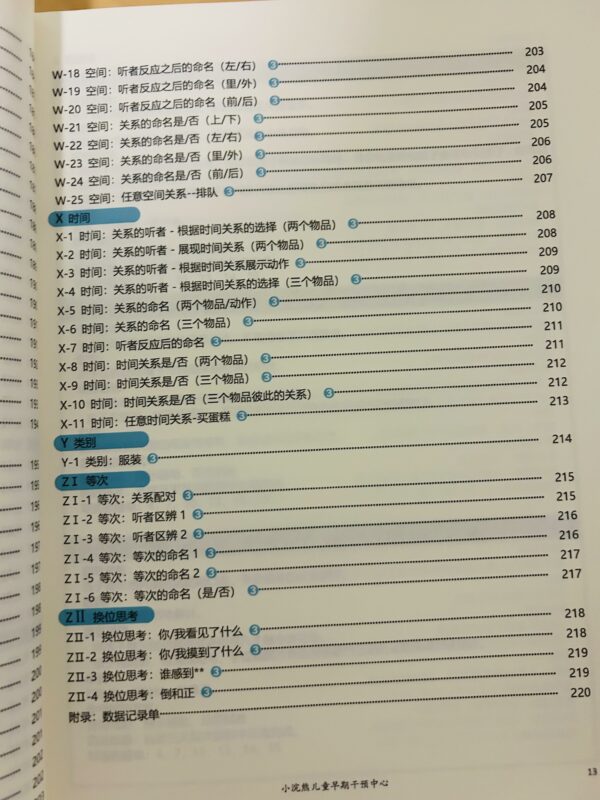 W-18 空间：听者反应之后的命名（左/右）③ 203
W-19 空间：听者反应之后的命名（里/外）③ 204
W-20 空间：听者反应之后的命名（前/后）③ 204
W-21 空间：关系的命名是/否（上/下）③ 205
W-22 空间：关系的命名是/否（左/右）③ 205
W-23 空间：关系的命名是/否（里/外）③ 206
W-24 空间：关系的命名是/否（前/后）③ 206
W-25 空间：任意空间关系--排队③ 207
X 时间
X-1 时间：关系的听者 - 根据时间关系的选择（两个物品）③ 208
X-2 时间：关系的听者 - 展现时间关系（两个物品）③ 208
X-3 时间：关系的听者 - 根据时间关系展示动作③ 209
X-4 时间：关系的听者 - 根据时间关系的选择（三个物品）③ 209
X-5 时间：关系的命名（两个物品/动作）③ 210
X-6 时间：关系的命名（三个物品）③ 210
X-7 时间：听者反应后的命名③ 211
X-8 时间：时间关系是/否（两个物品）③ 211
X-9 时间：时间关系是/否（三个物品）③ 212
X-10 时间：时间关系是/否（三个物品彼此的关系）③ 212
X-11 时间：任意时间关系-买蛋糕③ 213
Y 类别
Y-1 类别：服装③ 214
ZⅠ 等次
ZⅠ-1 等次：关系配对③ 215
ZⅠ-2 等次：听者区辨 1③ 215
ZⅠ-3 等次：听者区辨 2③ 216
ZⅠ-4 等次：等次的命名 1③ 216
ZⅠ-5 等次：等次的命名 2③ 217
ZⅠ-6 等次：等次的命名（是/否）③ 217
ZⅡ 换位思考
ZⅡ-1 换位思考：你/我看见了什么③ 218
ZⅡ-2 换位思考：你/我摸到了什么③ 218
ZⅡ-3 换位思考：谁感到**③ 219
ZⅡ-4 换位思考：倒和正③ 219
附录：数据记录单 220
小浣熊儿童早期干预中心
13